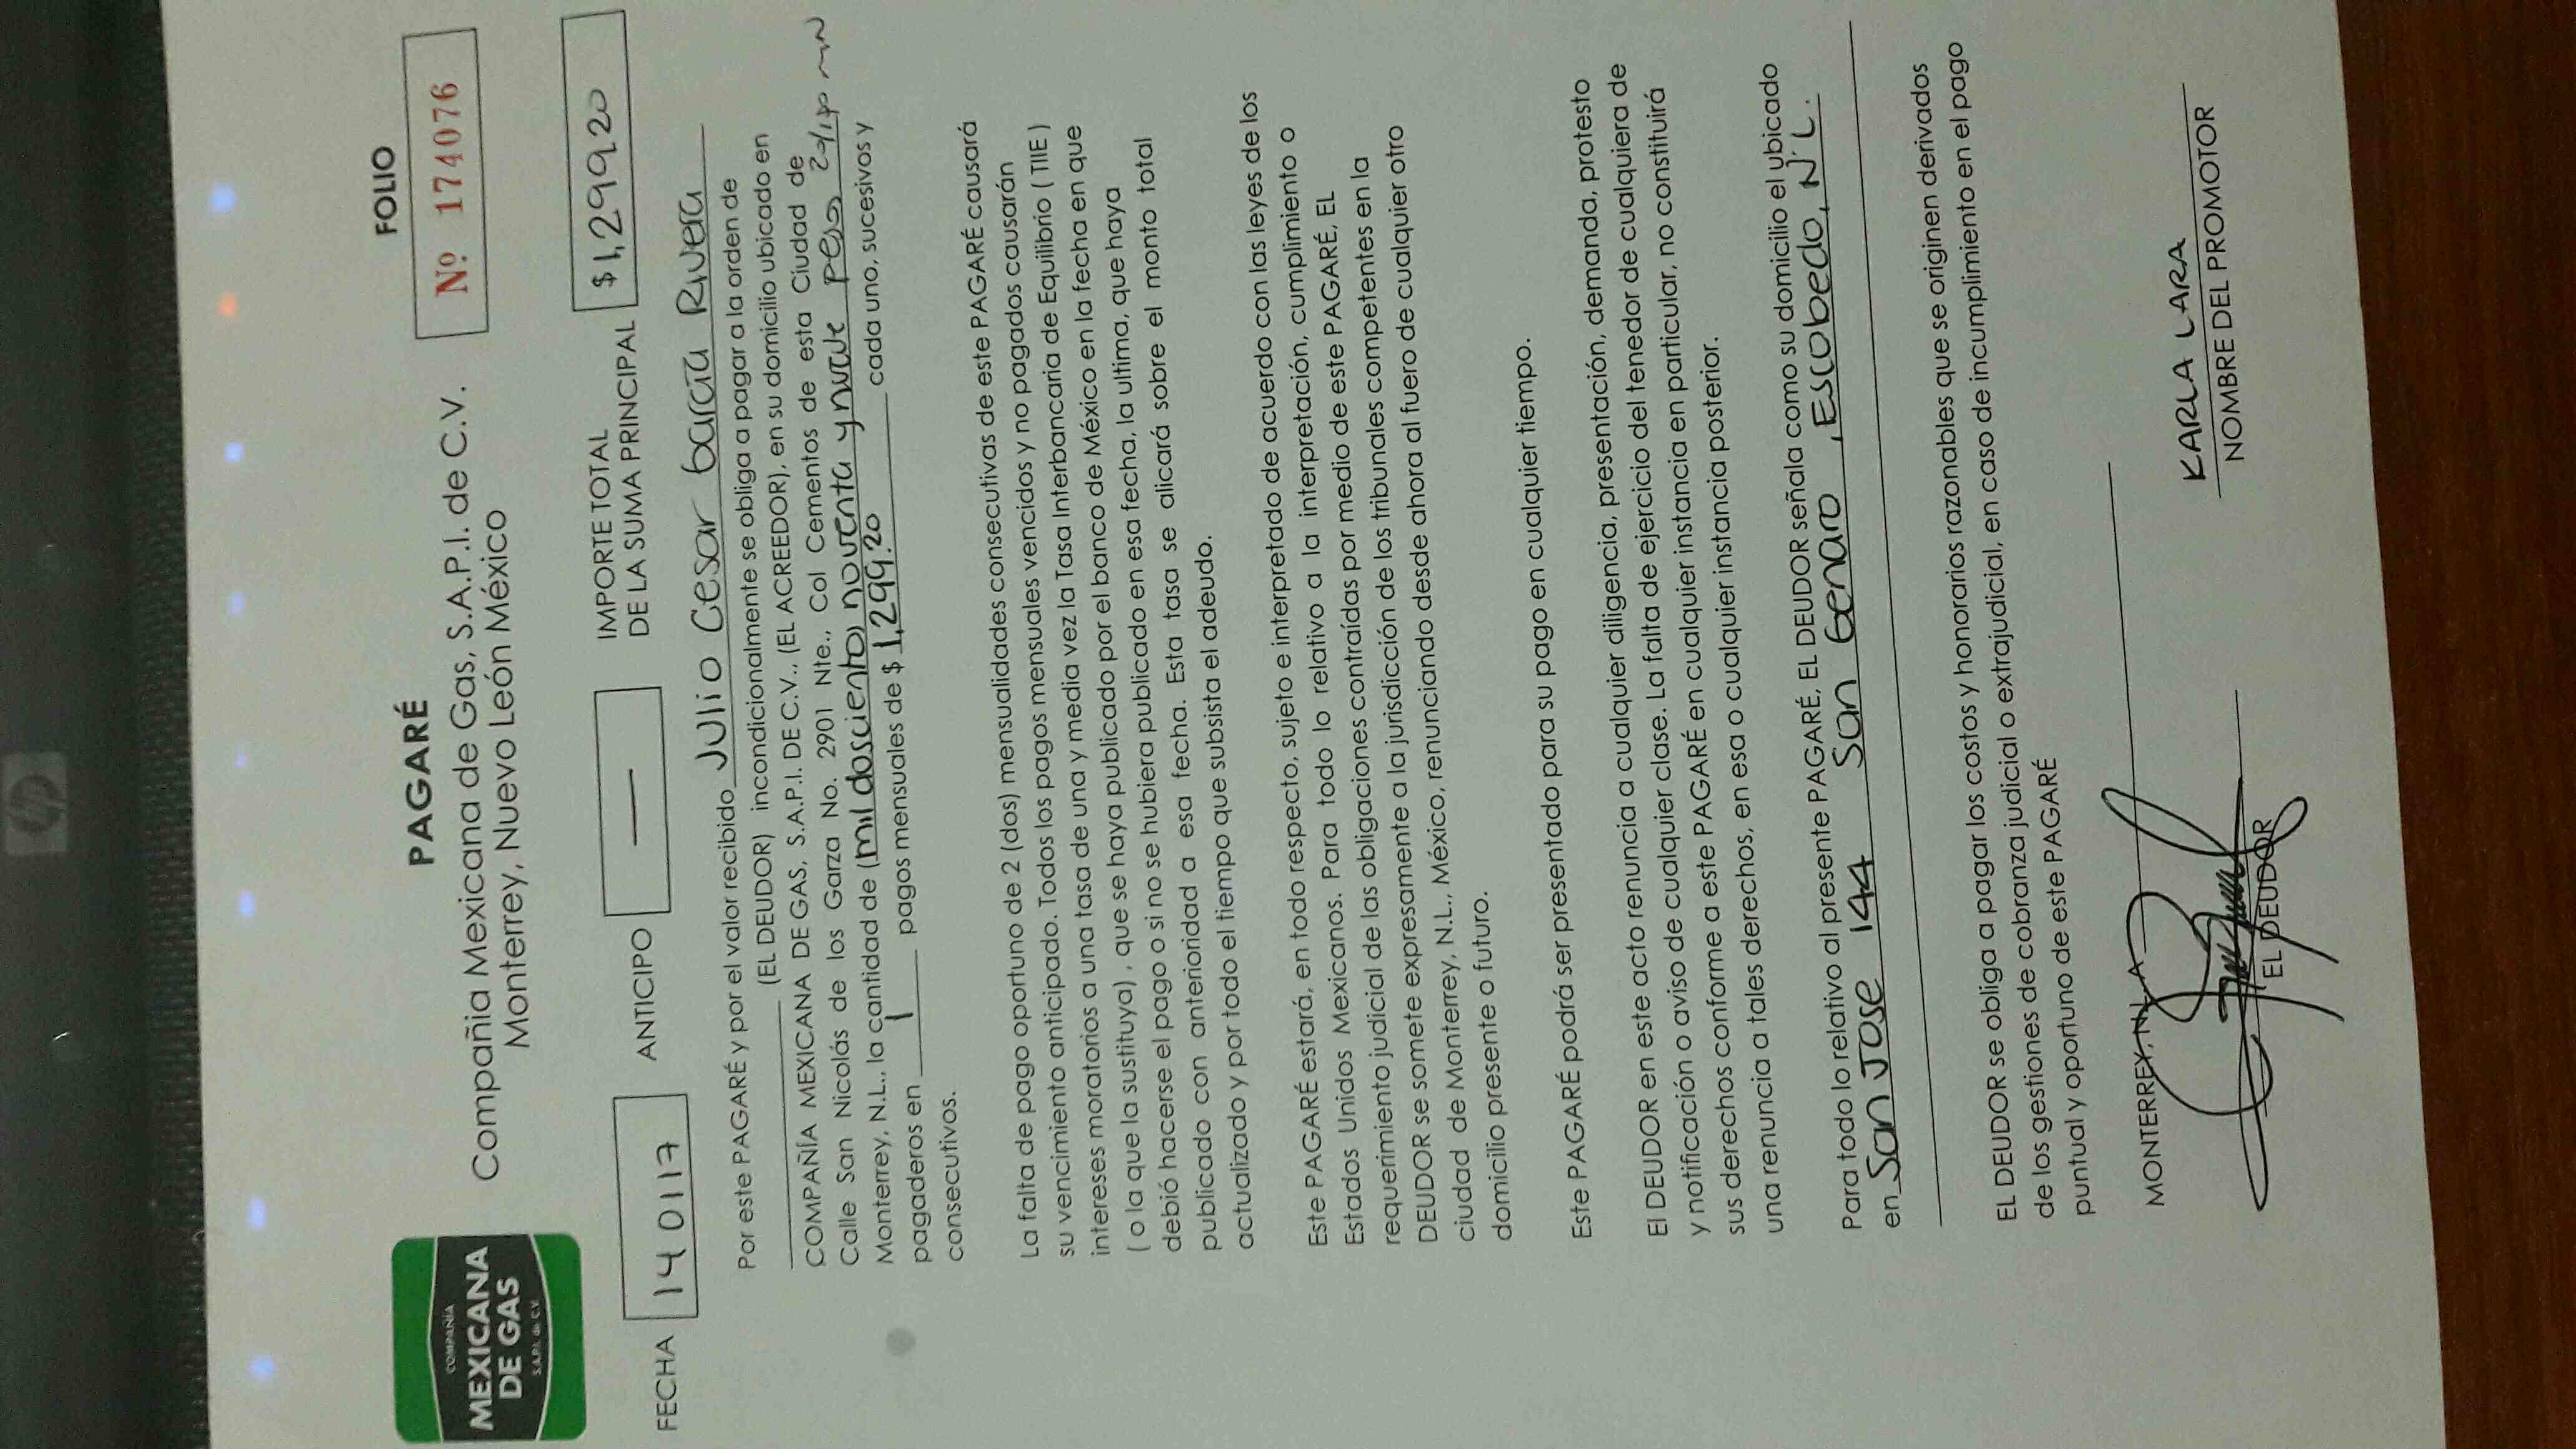 COMPAÑÍA
MEXICANA
DE GAS
S.A.P.I. de C.V.
PAGARÉ
Compañia Mexicana de Gas, S.A.P.I. de C.V.
Monterrey, Nuevo León México
FOLIO
Nº 174076
FECHA 140117 ANTICIPO — IMPORTE TOTAL
DE LA SUMA PRINCIPAL $1,299 20
Por este PAGARÉ y por el valor recibido Julio Cesar García Rivera
(EL DEUDOR) incondicionalmente se obliga a pagar a la orden de
COMPAÑÍA MEXICANA DE GAS, S.A.P.I. DE C.V., (EL ACREEDOR), en su domicilio ubicado en
Calle San Nicolás de los Garza No. 2901 Nte., Col Cementos de esta Ciudad de
Monterrey, N.L., la cantidad de (mil doscientos noventa y nueve pesos
pagaderos en 1 pagos mensuales de $ 1,299.20 cada uno, sucesivos y
consecutivos.
La falta de pago oportuno de 2 (dos) mensualidades consecutivas de este PAGARÉ causará
su vencimiento anticipado. Todos los pagos mensuales vencidos y no pagados causarán
intereses moratorios a una tasa de una y media vez la Tasa Interbancaria de Equilibrio ( TIIE )
( o la que la sustituya) , que se haya publicado por el banco de México en la fecha en que
debió hacerse el pago o si no se hubiera publicado en esa fecha, la ultima, que haya
publicado con anterioridad a esa fecha. Esta tasa se alicará sobre el monto total
actualizado y por todo el tiempo que subsista el adeudo.
Este PAGARÉ estará, en todo respecto, sujeto e interpretado de acuerdo con las leyes de los
Estados Unidos Mexicanos. Para todo lo relativo a la interpretación, cumplimiento o
requerimiento judicial de las obligaciones contraídas por medio de este PAGARÉ, EL
DEUDOR se somete expresamente a la jurisdicción de los tribunales competentes en la
ciudad de Monterrey, N.L., México, renunciando desde ahora al fuero de cualquier otro
domicilio presente o futuro.
Este PAGARÉ podrá ser presentado para su pago en cualquier tiempo.
El DEUDOR en este acto renuncia a cualquier diligencia, presentación, demanda, protesto
y notificación o aviso de cualquier clase. La falta de ejercicio del tenedor de cualquiera de
sus derechos conforme a este PAGARÉ en cualquier instancia en particular, no constituirá
una renuncia a tales derechos, en esa o cualquier instancia posterior.
Para todo lo relativo al presente PAGARÉ, EL DEUDOR señala como su domicilio el ubicado
en San Jose 144 San Genaro, Escobedo, N.L.
EL DEUDOR se obliga a pagar los costos y honorarios razonables que se originen derivados
de los gestiones de cobranza judicial o extrajudicial, en caso de incumplimiento en el pago
puntual y oportuno de este PAGARÉ
MONTERREY, N.L. A
EL DEUDOR
KARLA LARA
NOMBRE DEL PROMOTOR
hp